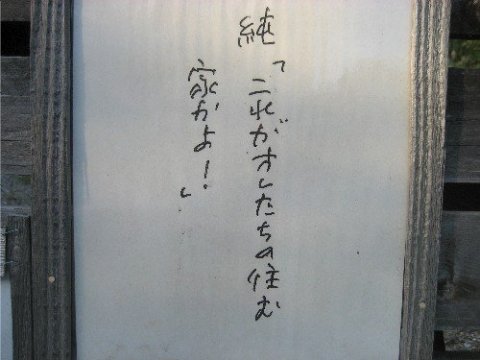 純「これがオレたちの住む
家かよ!」